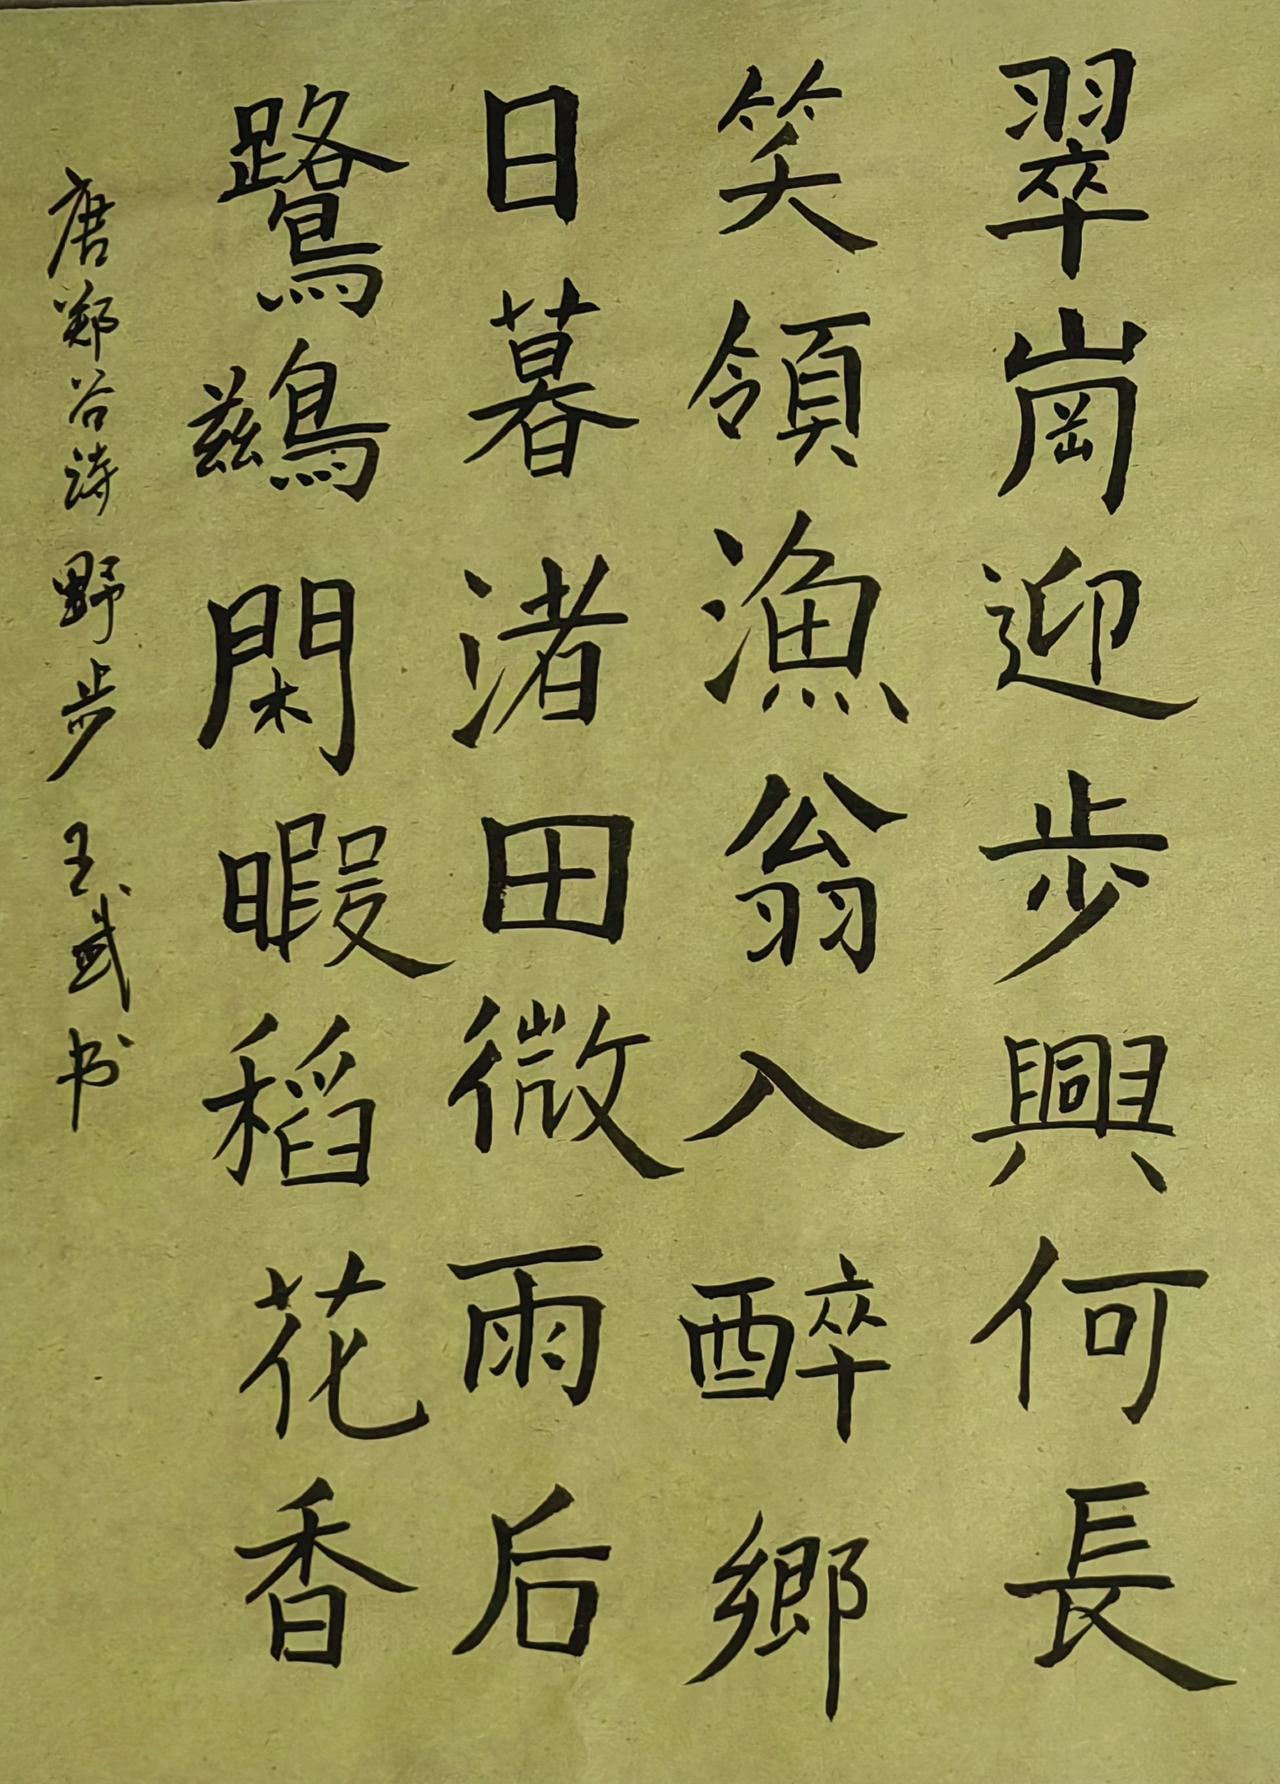 翠崗迎步興何長
笑領漁翁入醉鄉
日暮渚田微雨后
鷺鷀閑暇稻花香
唐郑谷诗 野步 王武书